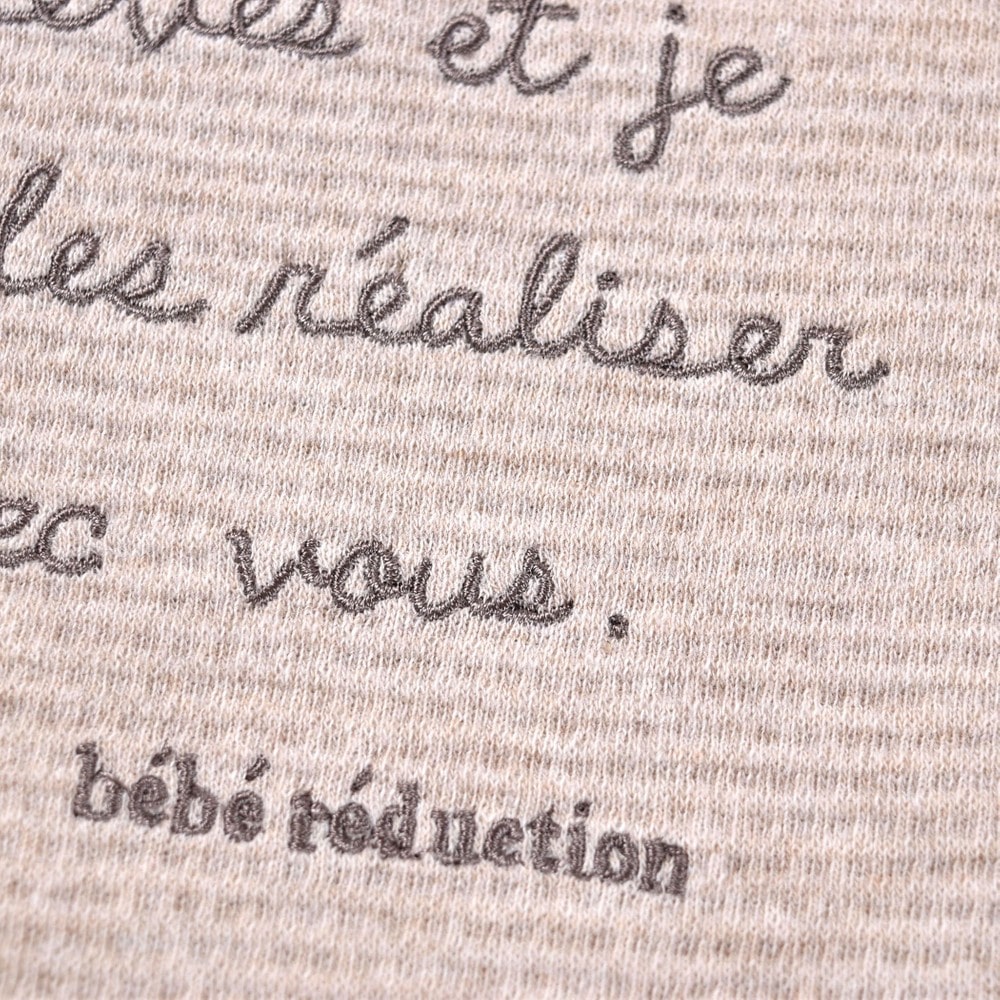 et je
les réaliser
ec vous.
bébé réduction